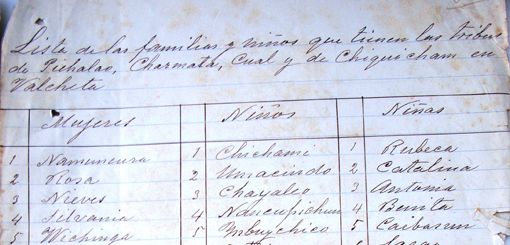 Lista de las familias y niños que tienen las tribus
de Pichalao, Charmata, Cual y de Chiquicham en
Valcheta
Mujeres Niños Niñas
1 Namuncura 1 Chichami 1 Rebeca
2 Rosa 2 2 Catalina
3 Nieves 3 Chayaleo 3 Antonia
4 Silvania 4 4 Benita
5 Wichinga 5 5